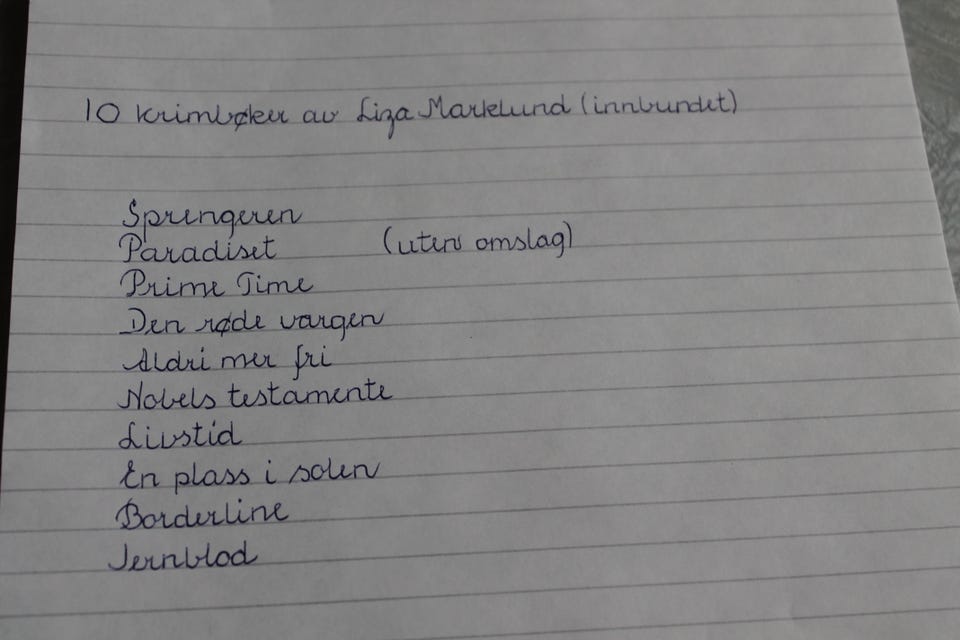 10 krimbøker av Liza Marklund (innbundet)
Sprengeren
Paradiset (uten omslag)
Prime Time
Den røde vargen
Aldri mer fri
Nobels testamente
Livstid
En plass i solen
Borderline
Jernblod